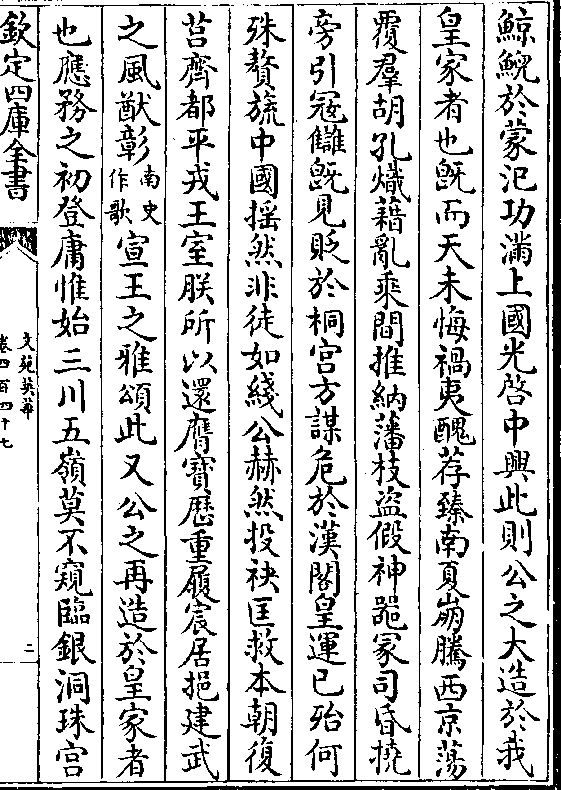 鯨鯢於蒙汜功滿上國光啓中興此則公之大造於我
皇家者也旣而天未悔禍夷醜荐臻南夏崩騰西京蕩
覆羣胡孔熾藉亂乘間推納藩枝盜假神噐冡司昏撓
旁引寇讎旣見貶於桐宮方謀危於漢閣皇運已殆何
殊贅旒中國揺然非徒如綫公赫然投袂匡救本朝復
莒齊都平戎王室朕所以還膺寳厯重履宸居挹建武
之風猷彰南史作歌宣王之雅頌此又公之再造於皇家者
也應務之初登庸惟始三川五嶺莫不窺臨銀洞珠宫
欽定四庫全書
文苑英華
卷四百四十七
二